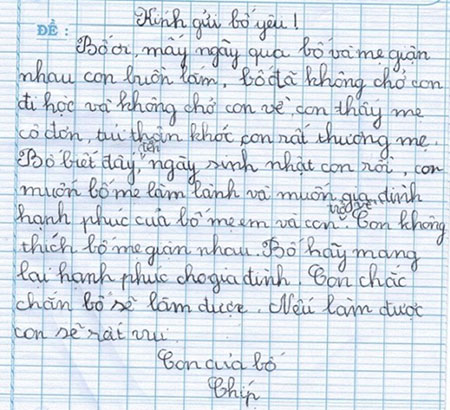 Kính gửi bố yêu!
ĐỀ:
Bố ơi, mấy ngày qua bố và mẹ giận
nhau con buồn lắm, bố đã không chở con
đi học và không chở con về, con thấy mẹ
cô đơn, tủi thân khóc, con rất thương mẹ.
Bố biết đây, tến ngày sinh nhật con rồi, con
muốn bố mẹ làm lành và muốn gia đình
hạnh phúc của bố mẹ em và con. Con không
thích bố mẹ giận nhau. Bố hãy mang
lại hạnh phúc cho gia đình. Con chắc
chắn bố sẽ làm được. Nếu làm được
con sẽ rất vui.
Con của bố
Chíp